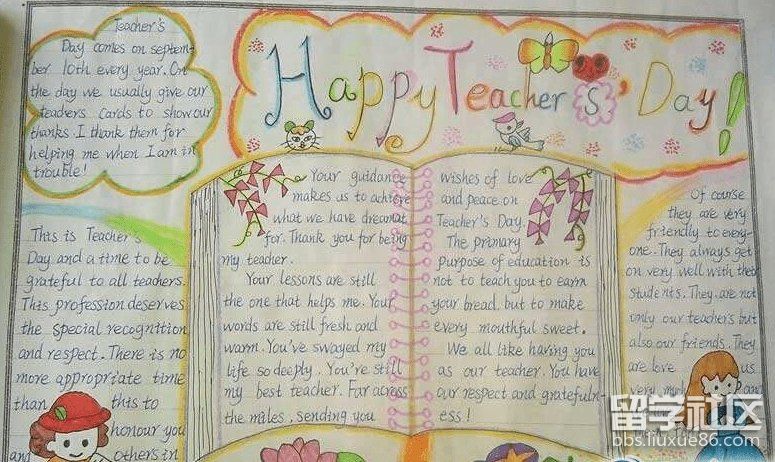 Happy Teachers' Day!
Teacher's
Day comes on septem-
ber 10th every year. On
the day we usually give our
teachers cards to show our
thanks I thank them for
helping me when I am in
trouble!
This is Teacher's
Day and a time to be
grateful to all teachers.
This profession deserves
the special recognition
and respect. There is no
more appropriate time
than this to
honour you
and others in
Your guidance
makes us to achieve
what we have dreamt
for. Thank you for being
my teacher.
Your lessons are still
the one that helps me. Your
words are still fresh and
warm. You've swayed my
life so deeply. You're still
my best teacher. Far across
the miles, sending you
wishes of love
and peace on
Teacher's Day.
The primary
purpose of education is
not to teach you to earn
your bread, but to make
every mouthful sweet.
We all like having you
as our teacher. You have
our respect and gratefuln-
ess!
Of course
they are very
friendly to every-
one. They always get
on very well with their
students. They are not
only our teachers but
also our friends. They
are love us
very much
留学社区
bbs.liuxue86.com